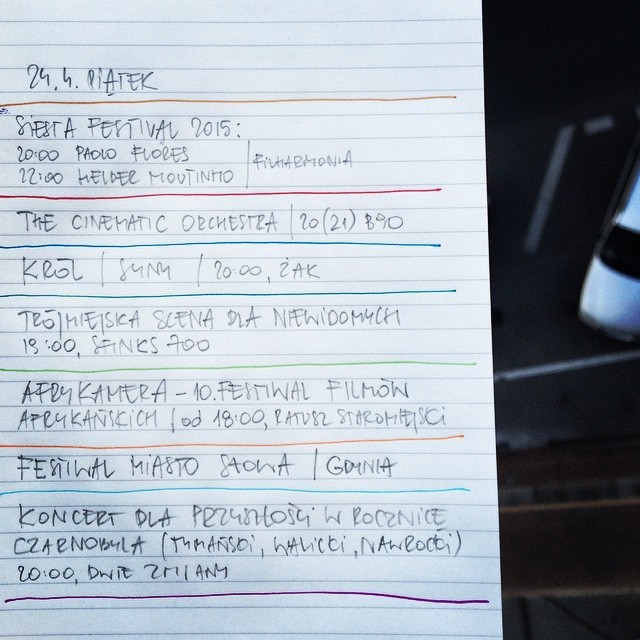 24.4. PIĄTEK
SIESTA FESTIVAL 2015:
20:00 PAOLO FLORES
22:00 HELDER MOUTINHO | FILHARMONIA
THE CINEMATIC ORCHESTRA | 20(21) B90
KRÓL | SYNY | 20:00, ŻAK
TRÓJMIEJSKA SCENA DLA NIEWIDOMYCH
19:00, SFINKS 700
AFRYKAMERA – 10. FESTIWAL FILMÓW
AFRYKAŃSKICH | od 18:00, RATUSZ STAROMIEJSCI
FESTIWAL MIASTO SŁOWA | GDYNIA
KONCERT DLA PRZYSZŁOŚCI W ROCZNICĘ
CZARNOBYLA (TYMAŃSCI, WALICKI, NAWROCKI)
20:00, DWIE ZMIANY